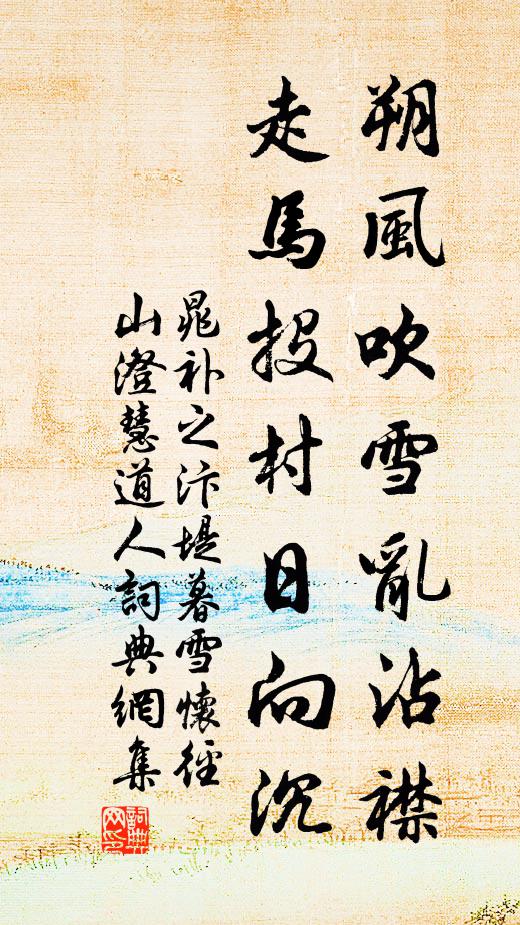 朔風吹雪亂沾襟
走馬投村日向沉
晁补之汴堤暮雪懷徑
山澄慧道人詞典網集
詞典网印